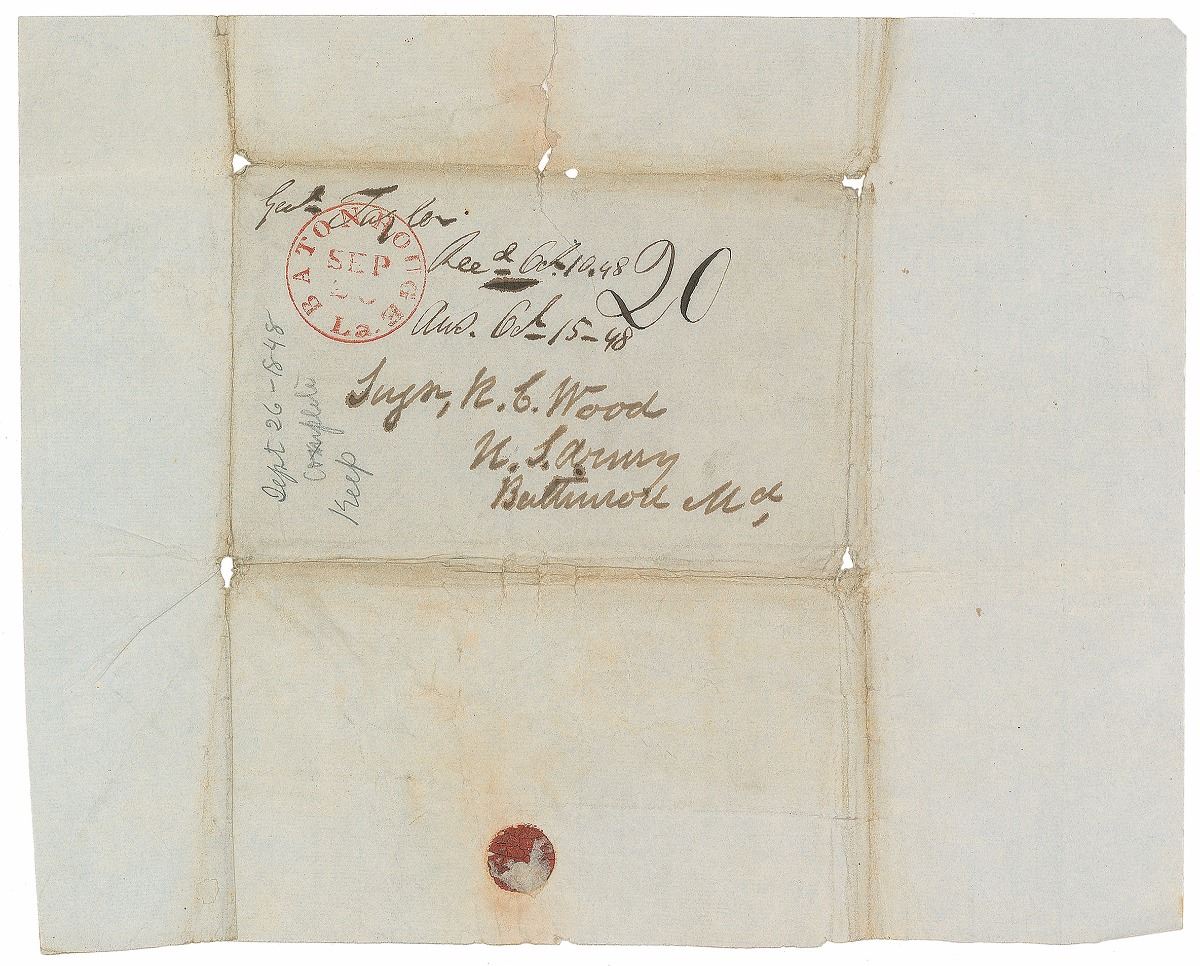 Genl. Taylor.
BATON ROUGE
SEP
La.
Recd Oct. 10. 48
20
Ans. Oct 15-48
Surgn, R. C. Wood
U. S. Army
Baltimore Md,
Sept 26-1848
Complete
Keep